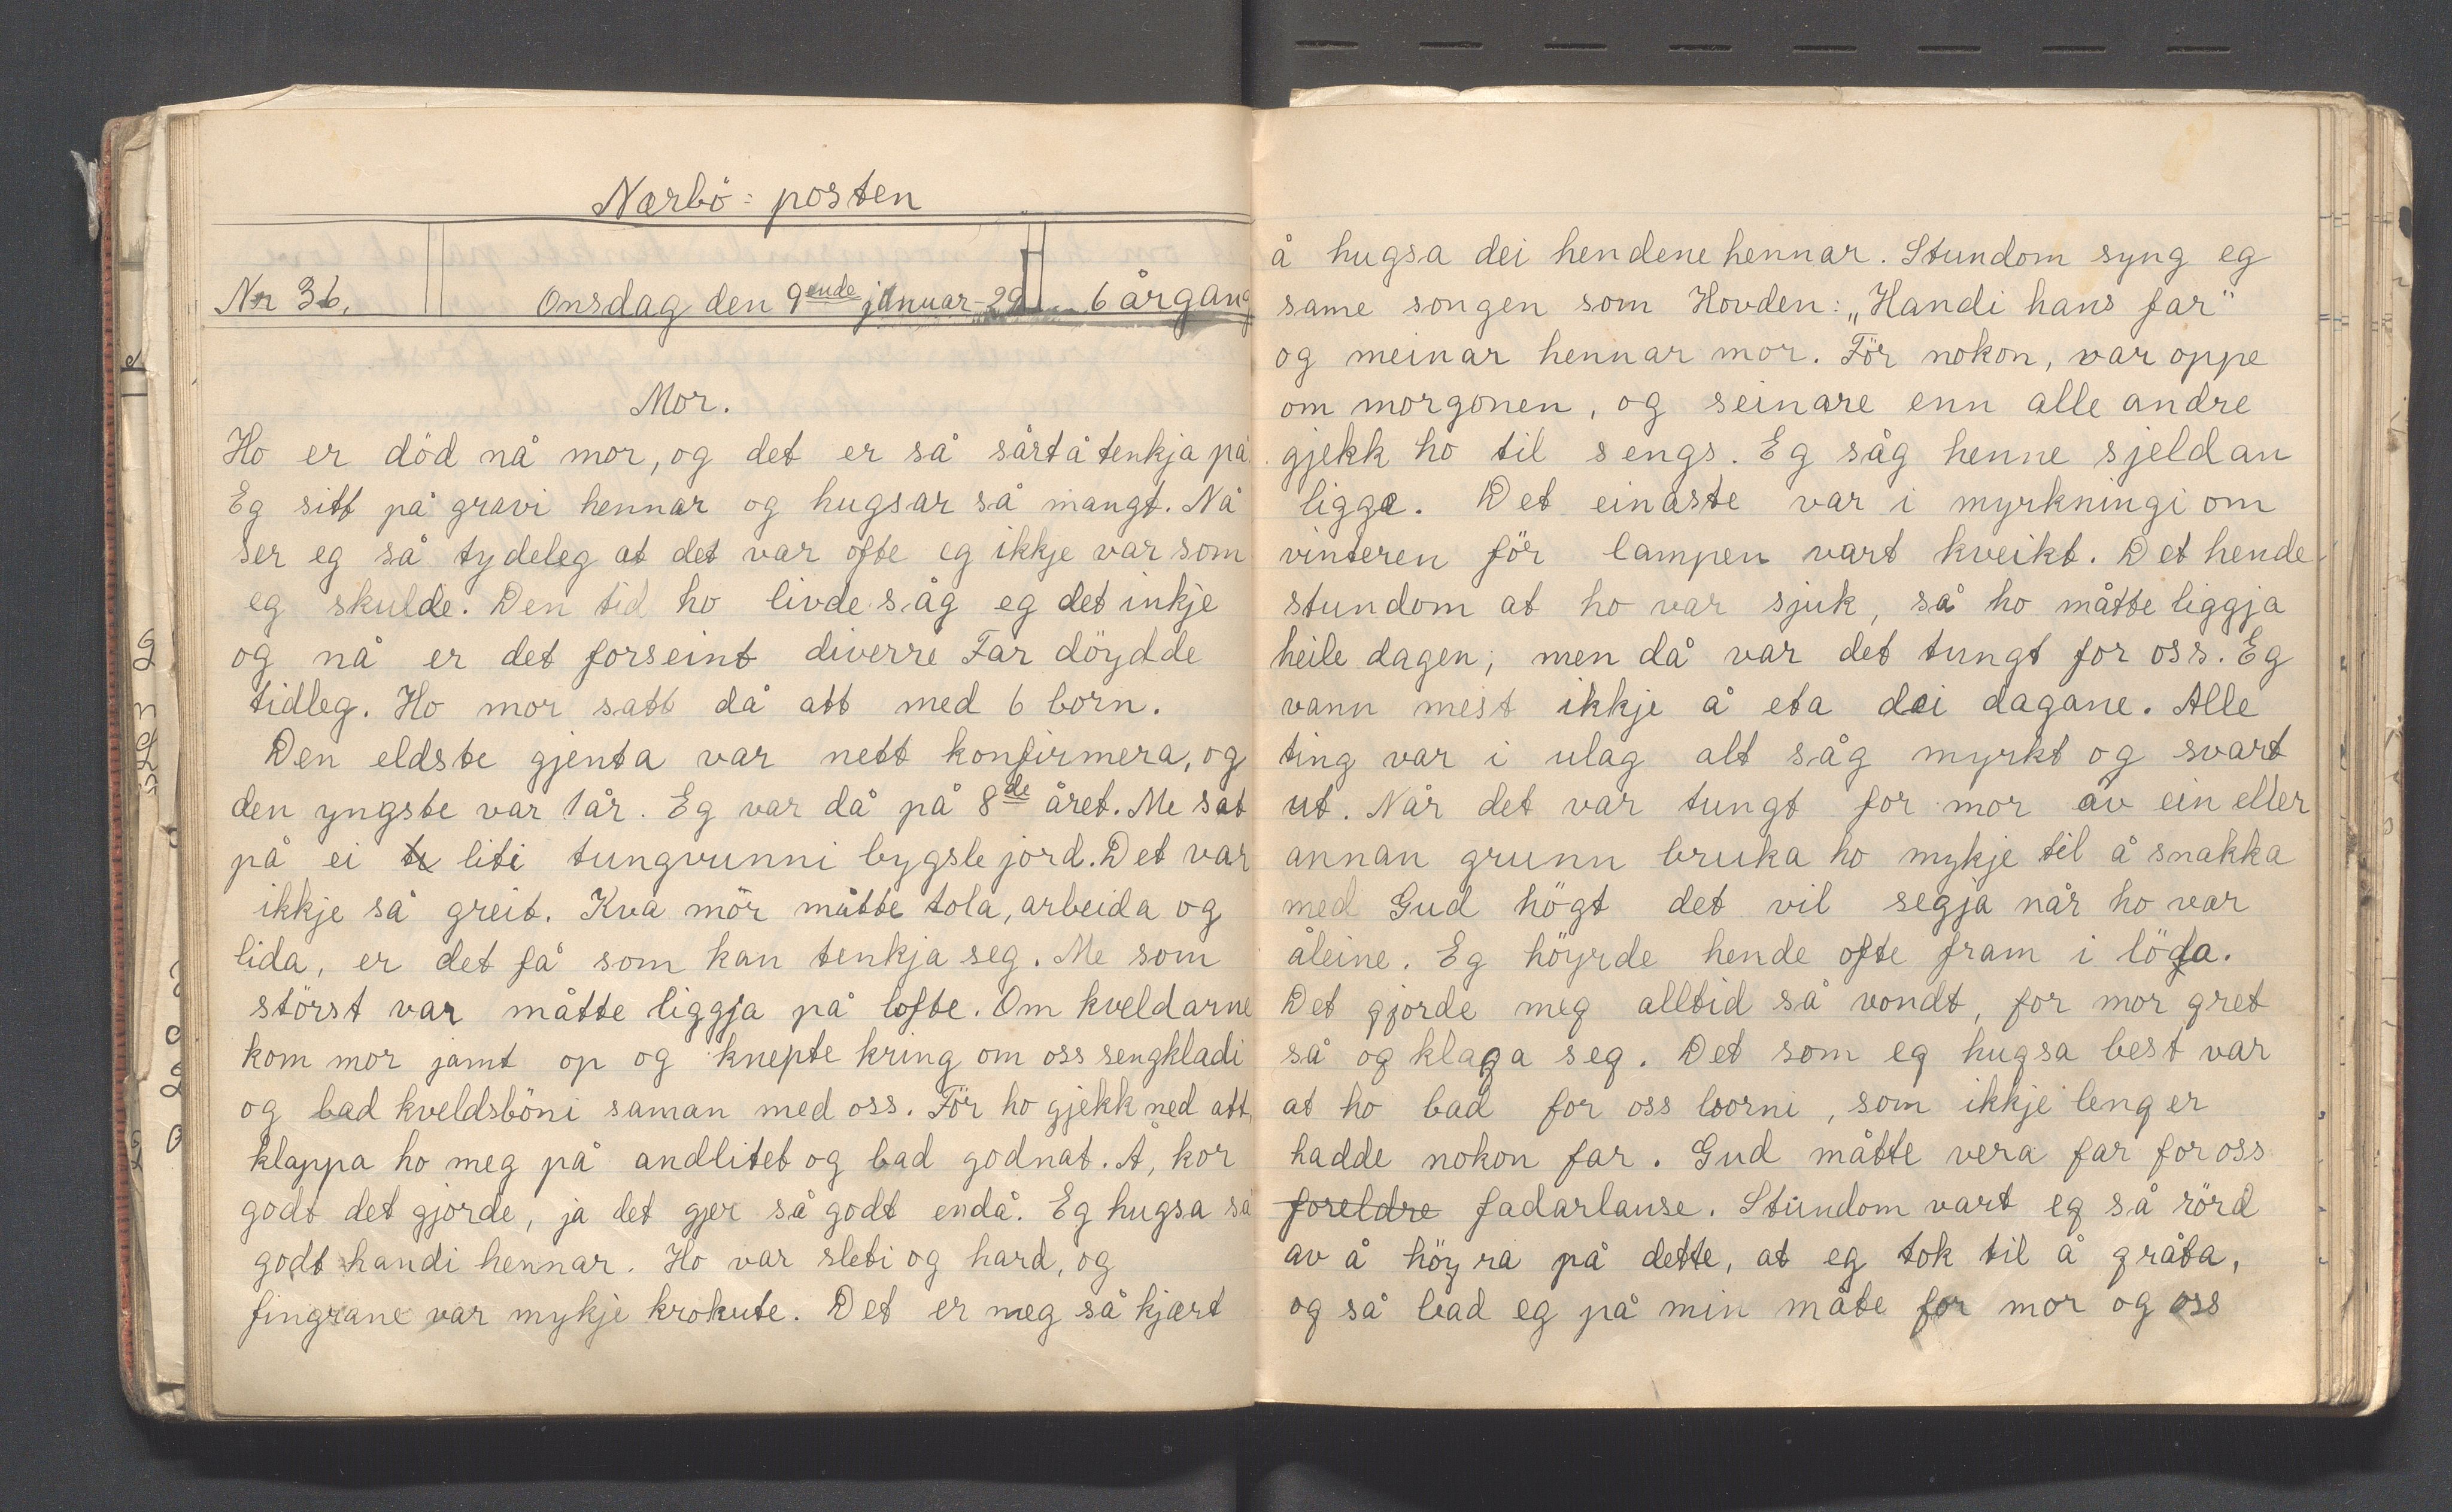 Nærbö-posten
Nr 36. Onsdag den 9ende januar-29 6 årgang
Mor.
Ho er död nå mor, og det er så sårt å tenkja på
Eg sitt på gravi hennar og hugsar så mangt. Nå
ser eg så tydeleg at det var ofte eg ikkje var som
eg skulde. Den tid ho livde såg eg det inkje
og nå er det forseint diverre Far döydde
tidleg. Ho mor satt då att med 6 born.
Den eldste gjenta var nett konfirmera, og
den yngste var 1 år. Eg var då på 8de året. Me sat
på ei liti tungvunni bygsle jord. Det var
ikkje så greit. Kva mör måtte tola, arbeida og
lida, er det få som kan tenkja seg. Me som
störst var måtte liggja på lofte. Om kveldarne
kom mor jamt op og knepte kring om oss sengkladi
og bad kveldsböni saman med oss. För ho gjekk ned att,
klappa ho meg på andlitet og bad godnat. Å, kor
godt det gjorde, ja det gjer så godt endå. Eg hugsa så
godt handi hennar. Ho var sleti og hard, og
fingrane var mykje krokute. Det er meg så kjært
å hugsa dei hendene hennar. Stundom syng eg
same songen som Hovden: „Handi hans far"
og meinar hennar mor. För nokon, var oppe
om morgonen, og seinare enn alle andre
gjekk ho til sengs. Eg såg henne sjeldan
ligge. Det einaste var i myrkningi om
vinteren för lampen vart kveikt. Det hende
stundom at ho var sjuk, så ho måtte liggja
heile dagen; men då var det tungt for oss. Eg
vann mest ikkje å eta dei dagane. Alle
ting var i ulag alt såg myrkt og svart
ut. Når det var tungt for mor av ein eller
annan grunn bruka ho mykje til å snakka
med Gud högt det vil segja når ho var
åleine. Eg höyrde hende ofte fram i löa.
Det gjorde meg alltid så vondt, for mor gret
så og klaga seg. Det som eg hugsa best var
at ho bad for oss borni, som ikkje lenger
hadde nokon far. Gud måtte vera far for oss
foreldre fadarlause. Stundom vart eg så rörd
av å höyra på dette, at eg tok til å gråta,
og så bad eg på min måte for mor og oss